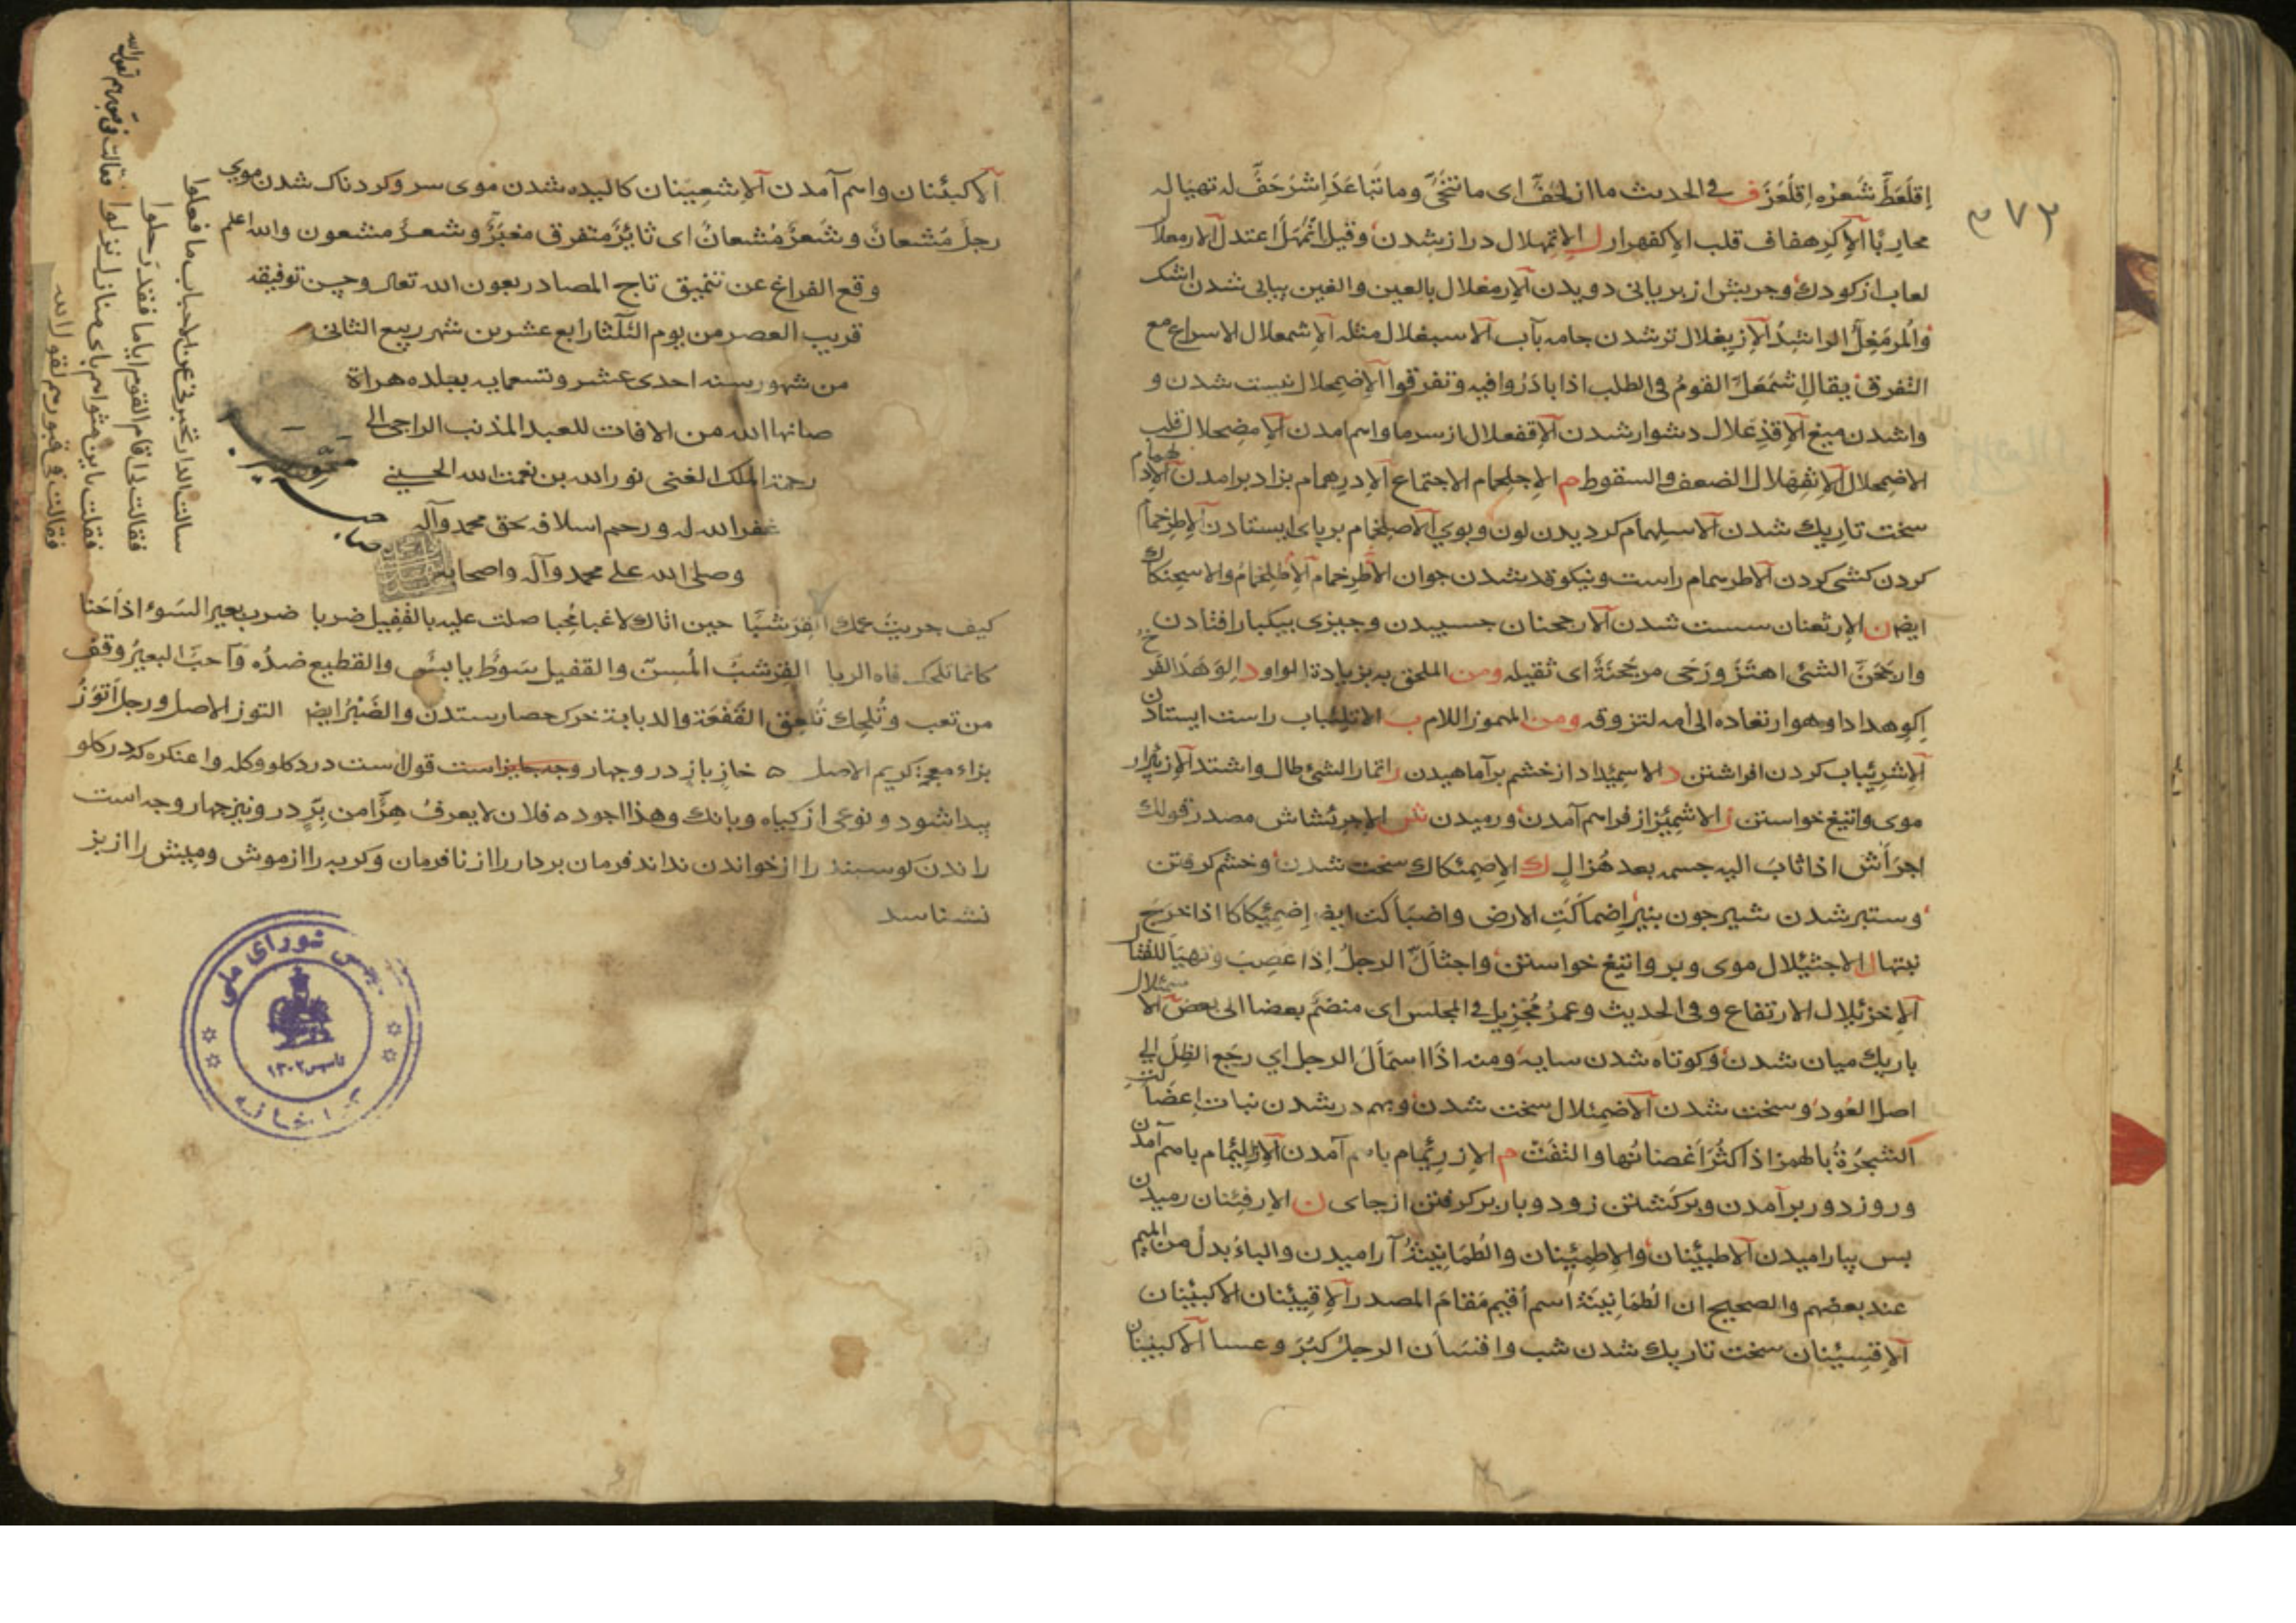 اِقلَعَطَّ شَعرُه اِقلَعَزَّ ف فى الحديث ما ازلحَفَّ اى ما تنَحّىَ وما تبَاعَدَ اِشرَحَفَّ له تهيَا له
محارِبًا الاِكرِهفاف قلب الاِكفهرار ل الاِتمِهلال دراز شدن وقيل اتمَهَلَّ اعتدل الارمعلال
لعاب از كودك وچربش از بريانى دويدن الاِرمغلال بالعين والغين پياپى شدن اشك
والمُرمَغِلُّ الراشِدُ الاِزبِغلال تر شدن جامه بآب الاسبغلال مثله الاِشمعلال الاسراع مع
التفرق يقال اِشمَعَلَّ القومُ فى الطلب اذا بادَرُوا فيه وتفرقوا الاِضمِحلال نيست شدن و
واشدن ميغ الاِقذِعلال دشوار شدن الاِقفعلال از سرما واسم امدن الاِمضِحلال قلب
الاضمحلال الاِثمِهلال الضعف والسقوط م الاِجلِحمام الاجتماع الاِدرِهمام بزاد برامدن الاِدلهمام
سخت تاريك شدن الاسلِهمام كرديدن لون وبوى الاصلِخمام بر پاى ايستادن الاِطرخمام
كردن كشى كردن الاطرسمام راست ونيكو قد شدن جوان الاطرخمام الاِطلِخمام والاسحِنكاك
ايض ن الارثعنان سست شدن الارجحنان جسبيدن وچيزى بيكبار افتادن
وارجَحَنَّ الشئ اهتَزَّ ورَحَى مرجَحِنّةٌ اى ثقيله ومن الملحق به بزيادة الواو د اِلوَهَدَّ الفَرخ
اِكوِهدادا وهو ارتعاده الى اُمه لتزوقه ومن المهموز اللام ب الاتلِئباب راست ايستادن
الاِشرِئباب كردن افراشتن د الاسمِئداد از خشم برآماهيدن ر اتمارّ الشئ طال واشتد الاِزبِئرار
موى واتيغ خواستن ز الاشمِئزاز فراسم آمدن ورميدن ش الاِجرِئشاش مصدر قولك
اجرَأَشَّ اذا ثابَ اليه جسمه بعد هُزال ك الاِضمِئكاك سخت شدن وخشم كرفتن
وستبر شدن شير چون پنير اِضمأَكّتِ الارض واضبَأكّت ايض اِضمِئكاكا اذا خرجَ
نبتها ل الاجثِئلال موى وپر واتيغ خواستن واجثَألَّ الرجلُ اِذا غضِبَ وتهيَأ للقتال
الاِخزِئلال الارتفاع وفى الحديث وعمرُ مُخزِئل فى المجلس اى منضمٌّ بعضا الى بعض الاسمئلال
باريك ميان شدن وكوتاه شدن سايه ومنه اذَا اسمَأَلَّ الرجل اى رجَع الظلّ الى
اصل العُود وسخت شدن الاضمِئلال سخت شدن وبهم در شدن نبات اِعضَأَلّتِ
الشجرَةُ بالهمز اذا كثُرَ اَغصانُها والتفَتّ م الاِزرِئمام باسم آمدن الاِزلِئمام باسم آمدن
وروز دور برآمدن وبركشتن زود وبار بركرفتن از جاى ن الاِرفِئنان رميدن
پس بياراميدن الاطبِئنان والاِطمِئنان والطُمَانِينَةُ آراميدن والباءُ بدلٌ من الميم
عند بعضهم والصحيح ان الطُمَانِينَةَ اسم اُقيم مَقامَ المصدر الاِقبِئنان الاكبئنان
الاِقسِئنان سخت تاريك شدن شب واقسَأن الرجل كبُرَ وعسا الاكبئنان
الاكبئنان واسم آمدن الاِشعِينان كاليده شدن موى سر وكردناك شدن موى
رجلٌ مُشعانٌّ وشَعرٌ مُشعانٌّ اى ثائرٌ متفرق مغبَرٌّ وشعرٌ مشعون والله اعلم
وقع الفراغ عن تنميق تاج المصادر بعون الله تعالى وحسن توفيقه
قريب العصر من يوم الثلثا رابع عشرين شهر ربيع الثانى
من شهور سنه احدى عشر وتسعمايه ببلده هراة
صانها الله من الافات للعبد المذنب الراجى الى
رحمة الملك الغنى نور الله بن نعمت الله الحسينى
غفر الله له ورحم اسلافه بحق محمد وآله
وصلى الله على محمد وآله واصحابه
كيف حريث عمك القِرشَبّا حين اتاك لاغبا مُخِبا صلت عليه بالقفيل ضربا ضرب بعير السَوء اذ اَحَبّا
القِرشَبّ المُسِنّ والقفيل سَوطٌ يابسٌ والقطيع ضدّه وَاَحبَّ البعيرُ وقف
من تعب
بزاء معجمة كريم الاصل ه خاز باز درو چهار وجه
پيدا شود ونوعى از كياه وبانك وهذا اجود ه فلان لا يعرفُ هِرًّا من بِرٍّ درو نيز چهار وجه است
راندن كوسبند را از خواندن نداند فرمان بردار را از نافرمان وكربه را از موش وميش را از بز
نشناسد
سالت الدار تخبرنى عن الاحباب ما فعلوا
فقالت لى اقام القوم اياما فقد رحلوا
فقلت باين مثواهم باى منازل نزلوا
فقالت فى قبورهم لقو الله
٢٧٢
شوراى ملى
تاسيس ١٣٠٢
كتابخانه